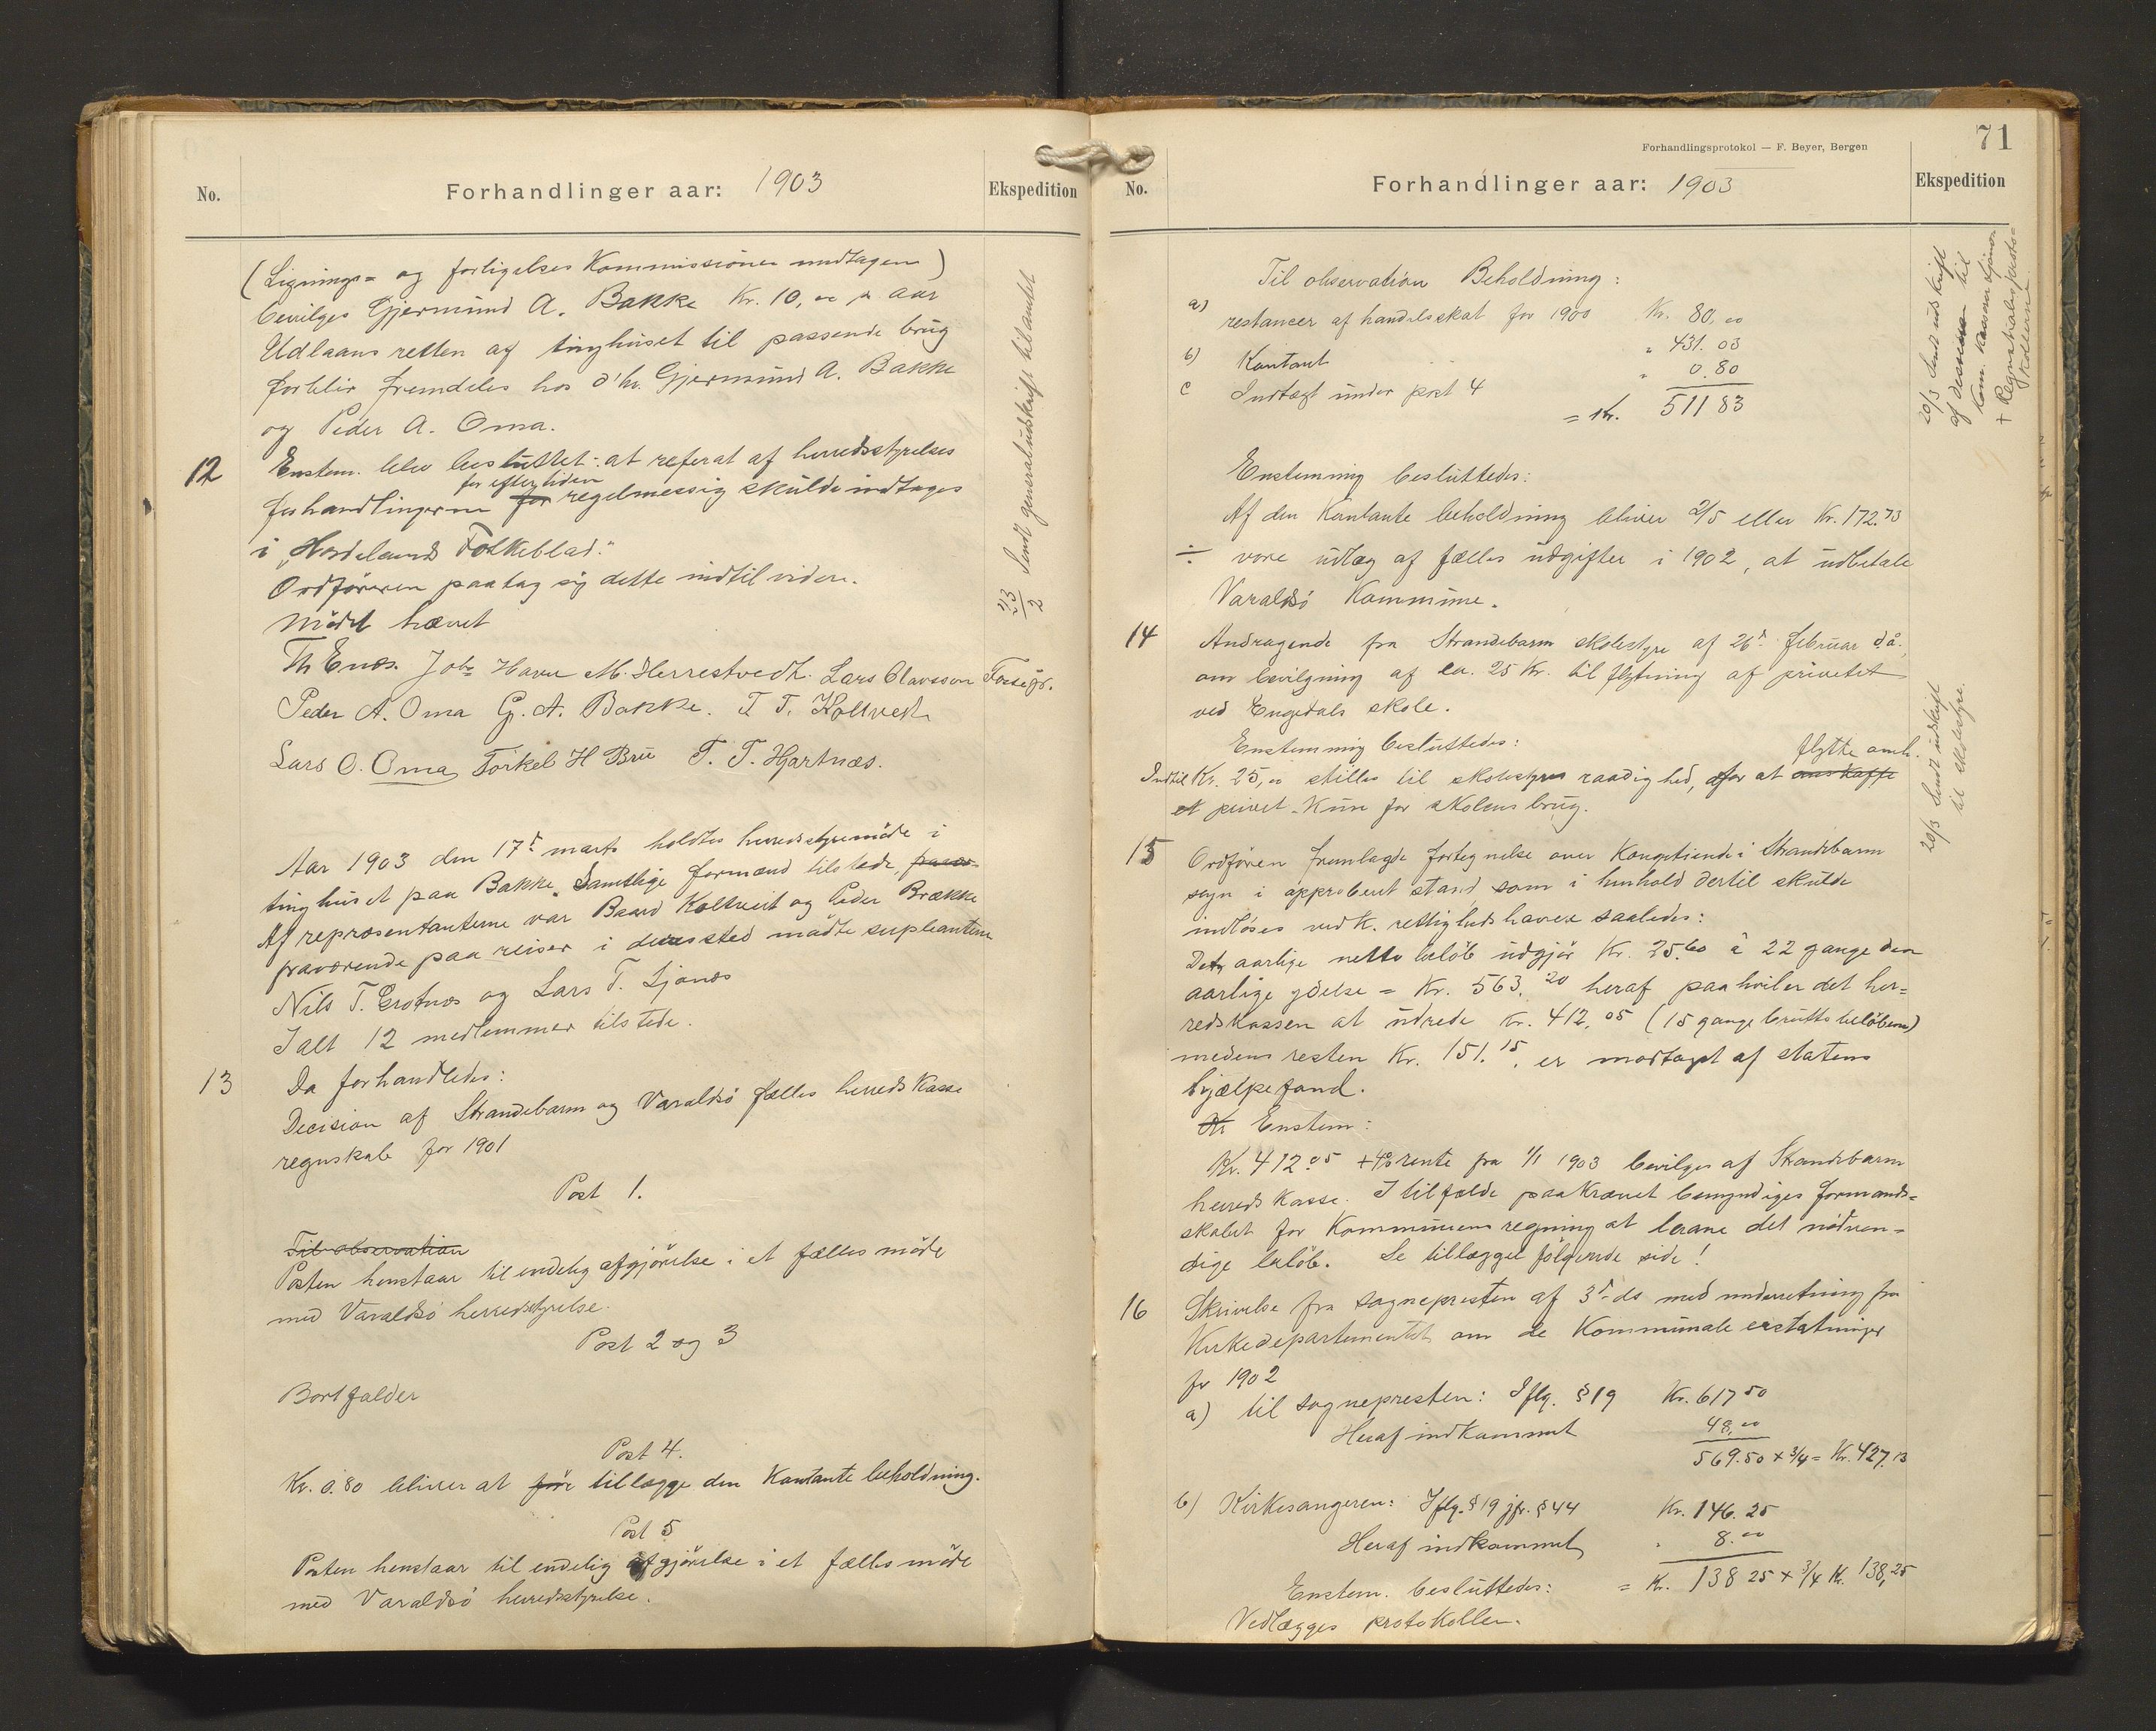 No.
Forhandlinger aar: 1903
Ekspedition
(Lignings= og forligelses Kommissionen undtagen)
bevilges Gjermund A. Bakke Kr. 10,00 pr aar
Udlaans retten af tinghuset til passende brug
forblir fremdeles hos d'hr. Gjermund A. Bakke
og Peder A. Oma.
12 Enstem. blev besluttet: at referat af herredsstyrelses
for eftertiden
forhandlingerne for regelmessig skulde indtages
i „Hordelands Folkeblad."
Ordföreren paatag sig dette indtil videre.
Mödet hævet
23/2 Sendt generaludskrift til amtet
Th Enæs. Johs Havn M. Herrestvedt. Lars Olavsson Fosse
Peder A. Oma G. A. Bakke. T. T. Koltvedt
Lars O. Oma Torkel H Bru T. T. Hjartnæs.
Aar 1903 den 17de marts holdtes herredsstyremöde i
tinghuset paa Bakke. Samtlige formænd tilstede,
Af repræsentanterne var Baard Koltveit og Peder Brække
fraværende paa reiser i deres sted mødte supleanterne
Nils T. Grotnæs og Lars T. Ljonæs
Ialt 12 medlemmer tilstede.
13 Da forhandledes:
Decision af Strandebarm og Varaldsö fælles herreds Kasse
regnskab for 1901
Post 1.
Til observation
Posten henstaar til endelig afgjörelse i et fælles möde
med Varaldsö herredsstyrelse.
Post 2 og 3
Bortfalder
Post 4.
Kr. 0.80 bliver at före tillægge den Kontante beholdning.
Post 5
Posten henstaar til endelig afgjörelse i et fælles möde
med Varaldsö herredsstyrelse.
Forhandlingsprotokol — F. Beyer, Bergen
71
No.
Forhandlinger aar: 1903
Ekspedition
Til observation Beholdning:
a) restancer af handelsskat for 1900 Kr. 80,00
b) Kontant " 431.03
c Indtægt under post 4 " 0.80
= Kr. 511 83
20/3 Sendt udskrift
af decision til
Kom. Kassererne
+ Regnskabs
Enstemmig besluttedes:
Af den Kontante beholdning bliver 2/5 eller Kr. 172.73
÷ vore udlæg af fælles udgifter i 1902, at udbetale
Varaldsö Kommune.
14 Andragende fra Strandebarm skolestyre af 26de februar d.å.
om bevilgning af ca. 25 Kr. til flytning af privetet
ved Engedals skole.
Enstemmig besluttedes:
flytte omh.
Indtil Kr. 25,00 stilles til skolestyrets raadighed, for at anskaffe
et privet Kun for skolens brug.
20/3 Sendt udskrift
til skolestyre.
15 Ordføren fremlagde fortegnelse over Kongetiende i Strandebarm
sogn i approberet stand, som i henhold dertil skulde
indlöses ved K. rettighedshavere saaledes:
Det aarlige netto belöb udgjör Kr. 25.60 à 22 gange den
aarlige ydelse = Kr. 563.20 heraf paahviler det her=
redskassen at udrede Kr. 412.05 (15 gange brutto belöbene)
medens resten Kr. 151.15. er modtaget af statens
hjælpefond.
Kr Enstem:
Kr. 412.05 + 4% rente fra 1/1 1903 bevilges af Strandebarm
herreds Kasse. I tilfælde paakrævet bemyndiges formands=
skabet for Kommunens regning at laane det nödven=
dige belöb. Se tillægget fölgende side!
16 Skrivelse fra sognepresten af 3de ds med underretning fra
Kirkedepartementet om de Kommunale erstatninger
for 1902
a) til sognepresten: Iflg. §19 Kr. 617 50
Heraf indkommet 48,00
569.50 x 3/4 = Kr. 427.13
b) Kirkesangeren: Iflg. §19 jfr. §44 Kr. 146.25
Heraf indkommet " 8.00
= Kr. 138 25 x 3/4 Kr. 138,25
Enstem. besluttedes:
Vedlægges protokollen.